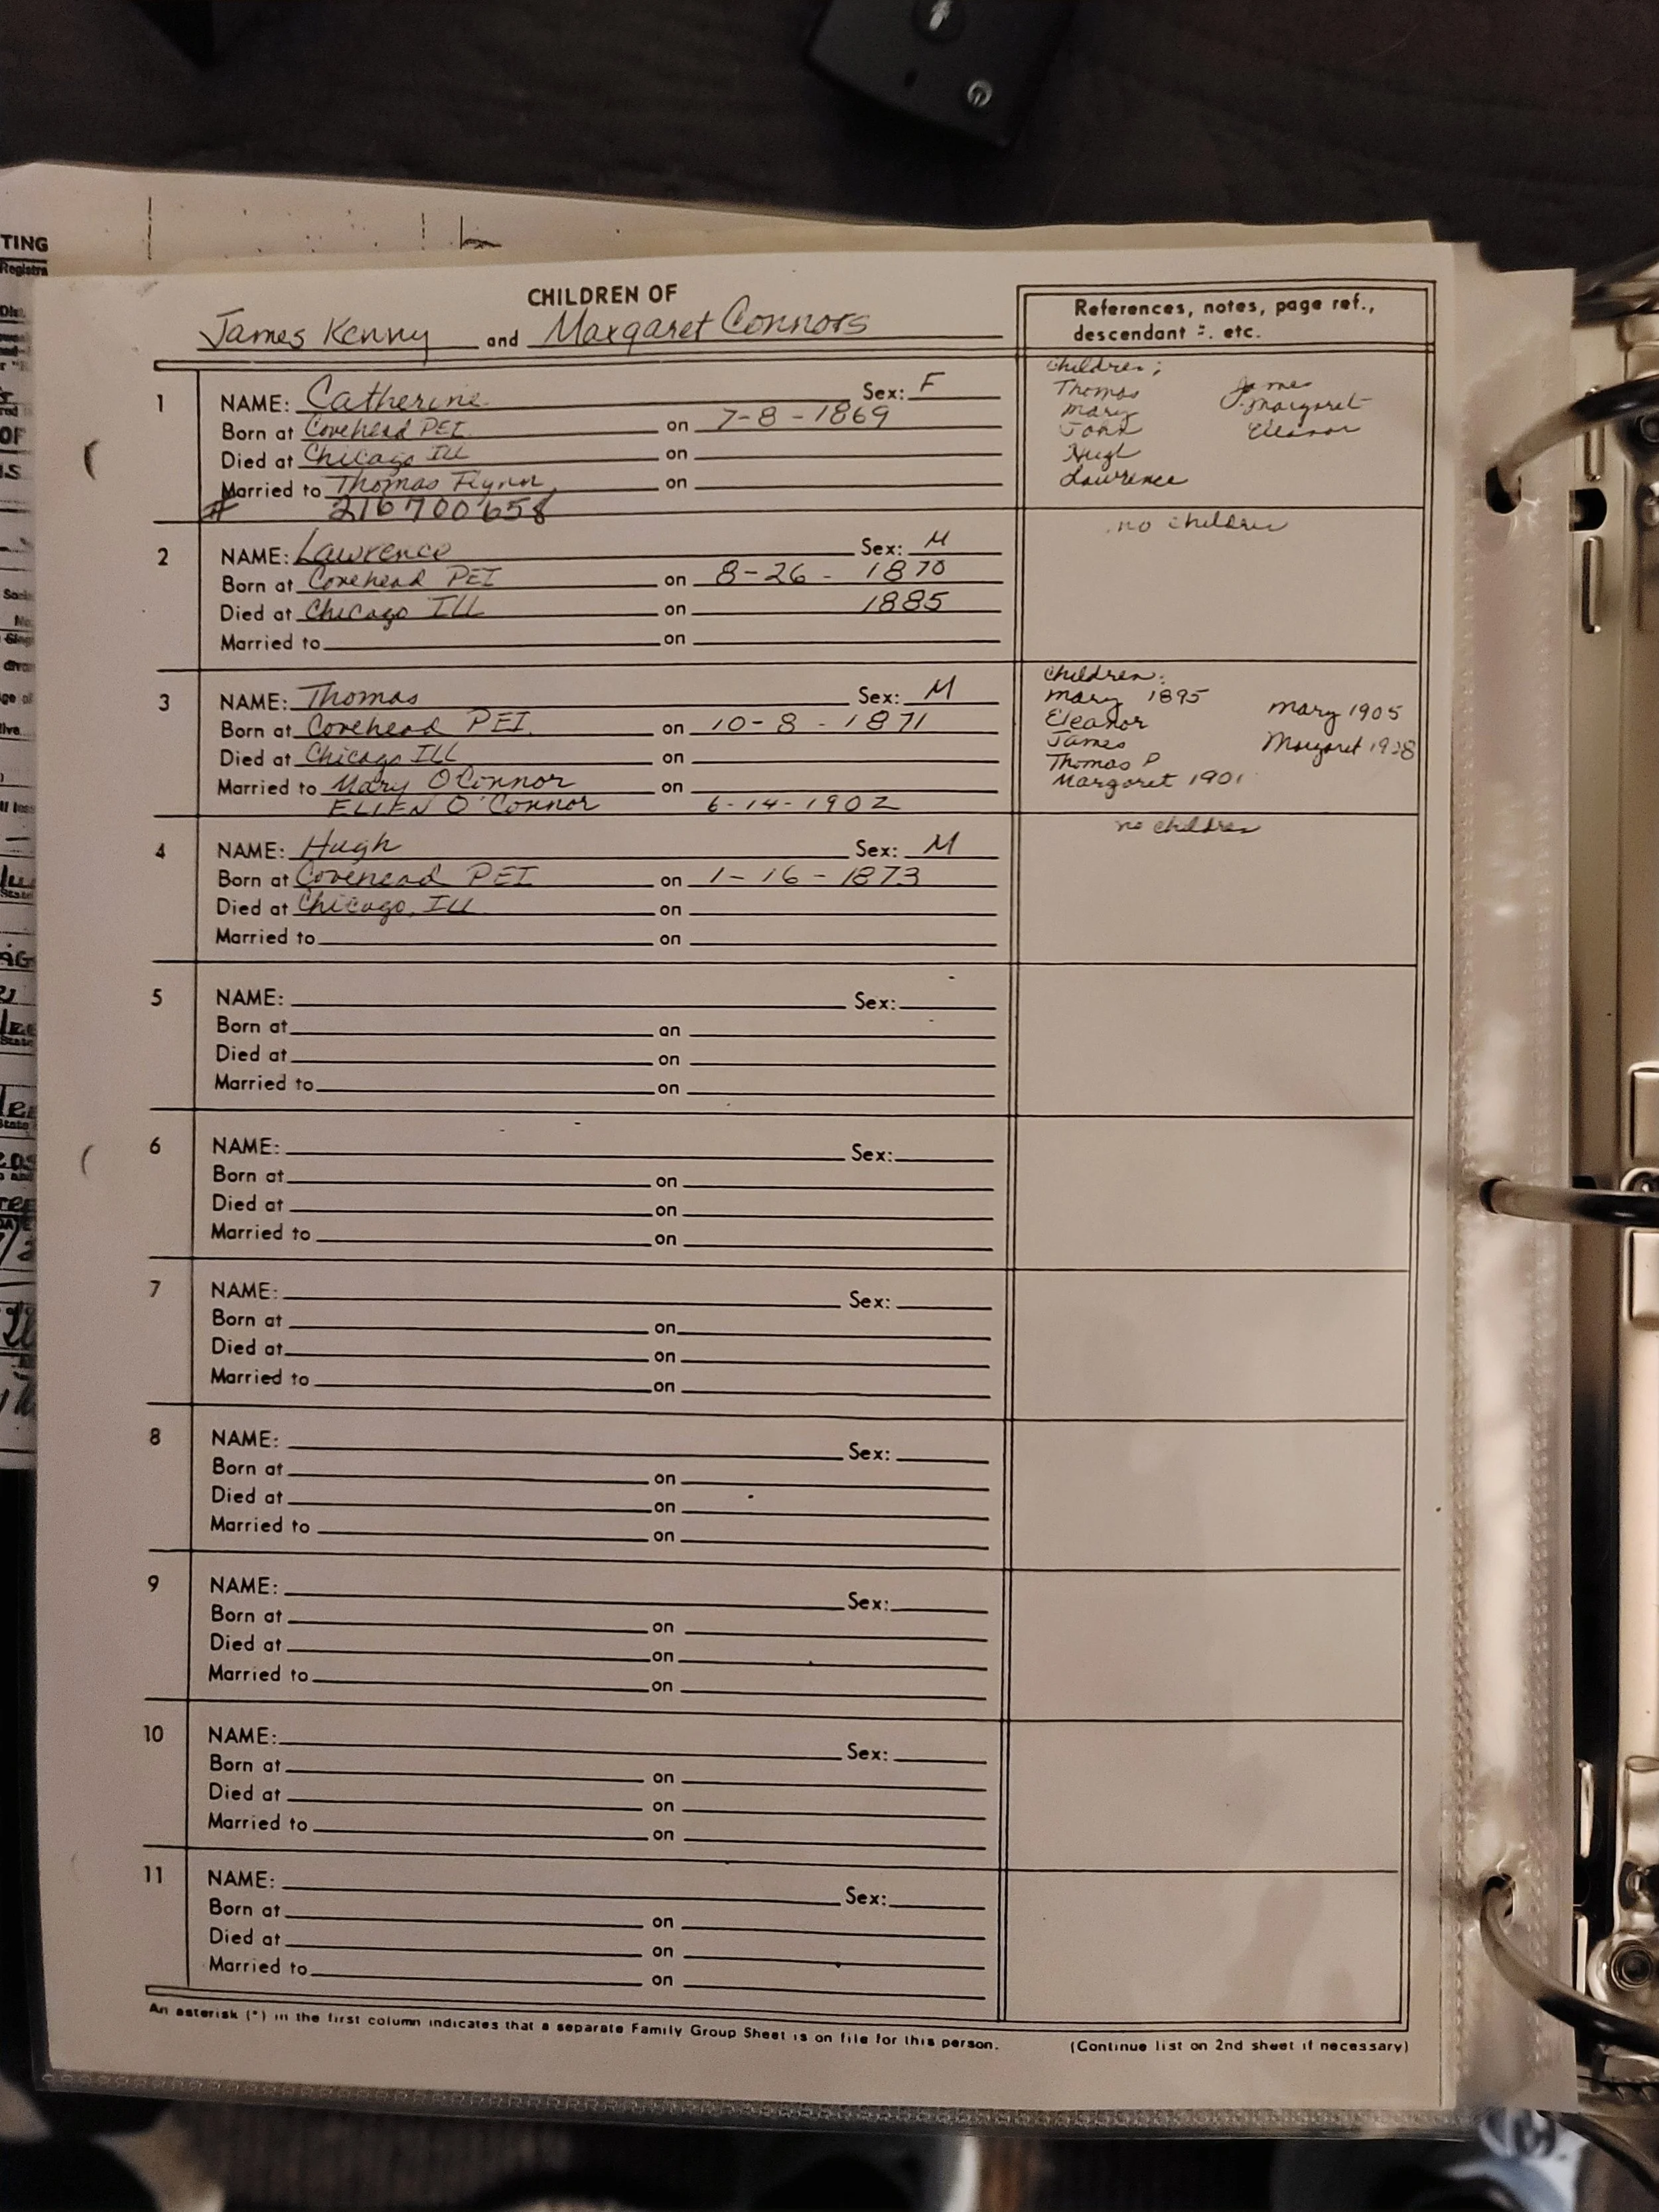 CHILDREN OF
James Kenny and Margaret Connors
References, notes, page ref.,
descendant =. etc.
1
NAME: Catherine Sex: F
Born at Covehead PEI on 7-8-1869
Died at Chicago Ill on
Married to Thomas Flynn on
# 216700658
Children;
Thomas James
Mary Margaret
John Eleanor
Hugh
Lawrence
2
NAME: Lawrence Sex: M
Born at Covehead PEI on 8-26-1870
Died at Chicago ILL on 1885
Married to on
no children
3
NAME: Thomas Sex: M
Born at Covehead PEI. on 10-8-1871
Died at Chicago ILL on
Married to Mary O'Connor on
ELLEN O'Connor 6-14-1902
Children:
Mary 1895 Mary 1905
Eleanor
James Margaret
Thomas P
Margaret 1901
4
NAME: Hugh Sex: M
Born at Covehead PEI on 1-16-1873
Died at Chicago, Ill on
Married to on
no children
5
NAME: Sex:
Born at on
Died at on
Married to on
6
NAME: Sex:
Born at on
Died at on
Married to on
7
NAME: Sex:
Born at on
Died at on
Married to on
8
NAME: Sex:
Born at on
Died at on
Married to on
9
NAME: Sex:
Born at on
Died at on
Married to on
10
NAME: Sex:
Born at on
Died at on
Married to on
11
NAME: Sex:
Born at on
Died at on
Married to on
An asterisk (*) in the first column indicates that a separate Family Group Sheet is on file for this person. (Continue list on 2nd sheet if necessary)
TING